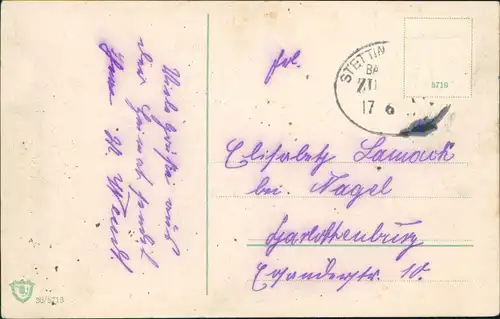 Viele Grüße aus
der Heimat sendet
Ihnen H. Wendt.
Frl.
STETTIN
BA
ZU
17 6
5719
Elisabeth Lamack
bei Nagel
Charlottenburg
Eosanderstr. 10.
50/5719